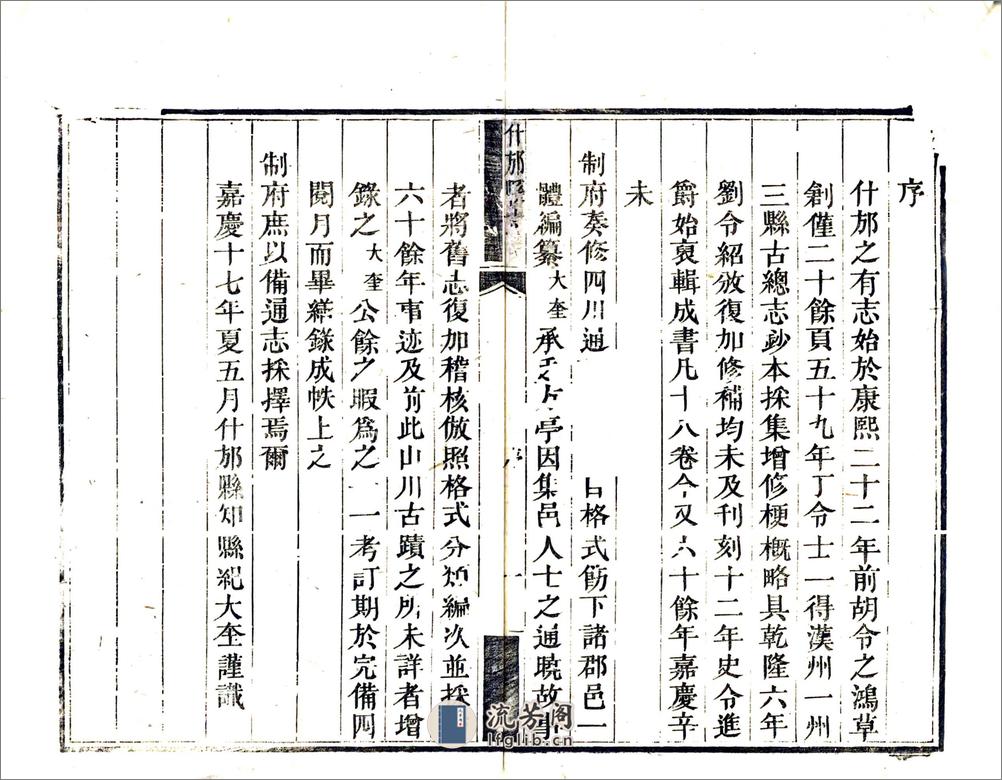 序
什邡之有志始於康熙二十二年前胡令之鴻草
創僅二十餘頁五十九年丁令士一得漢州一州
三縣古總志鈔本採集增修梗概略具乾隆六年
劉令紹攽復加修補均未及刊刻十二年史令進
爵始裒輯成書凡十八卷今又六十餘年嘉慶辛
未
制府奏修四川通 格式飭下諸郡邑一
體編纂大奎承 亭因集邑人士之通曉故事
什邡縣志
序
一
者將舊志復加稽核倣照格式分類編次並採
六十餘年事迹及前此山川古蹟之所未詳者增
錄之大奎公餘之暇為之一一考訂期於完備四
閱月而畢繕錄成帙上之
制府庶以備通志採擇焉爾
嘉慶十七年夏五月什邡縣知縣紀大奎謹識
流芳阁
lfglib.cn